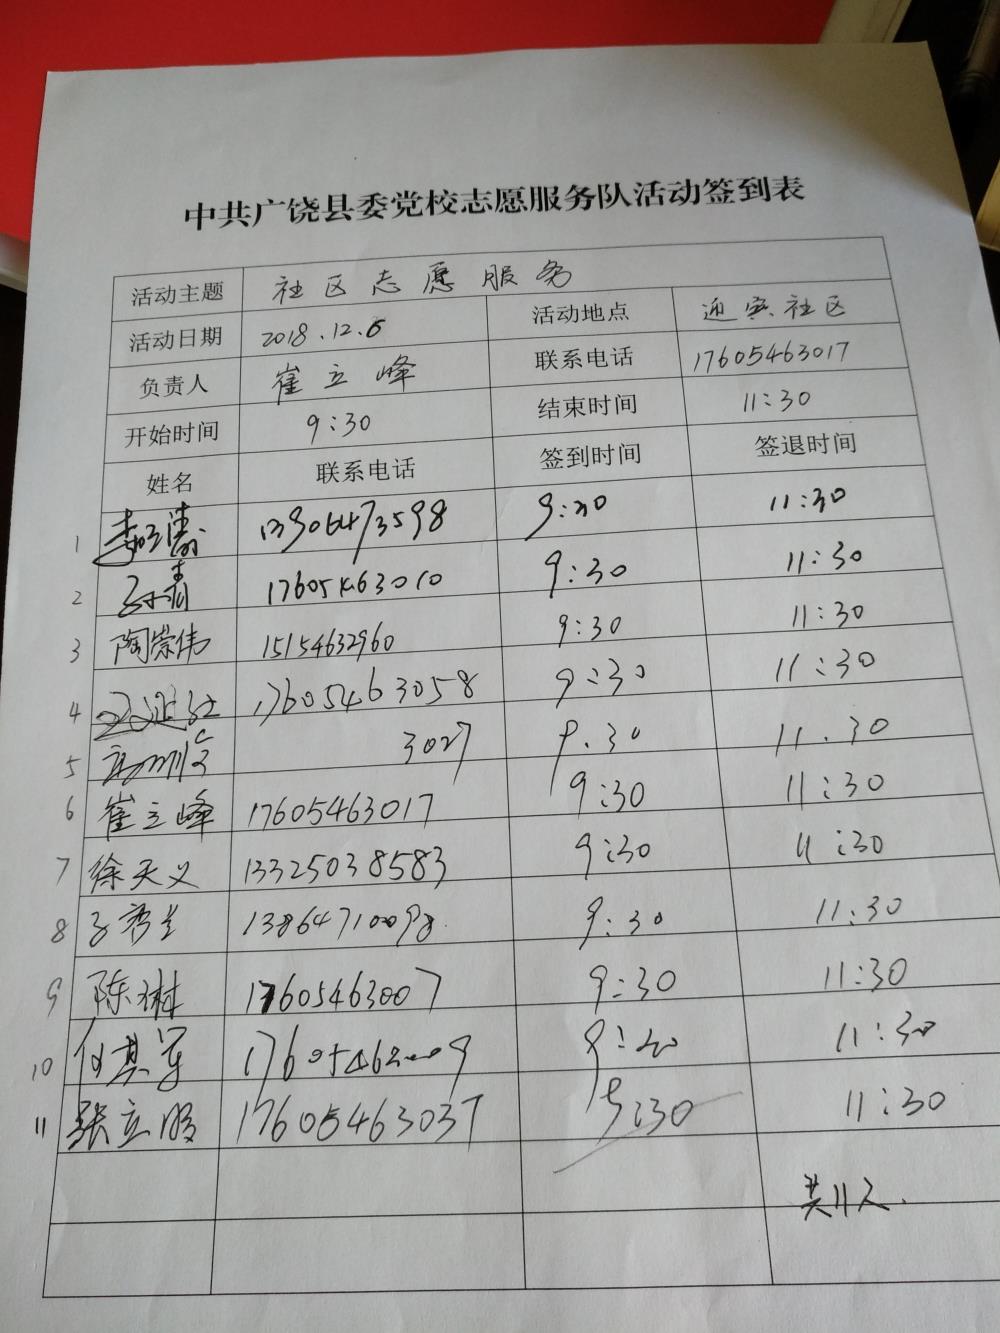 中共广饶县委党校志愿服务队活动签到表
活动主题 社区志愿服务
活动日期 2018.12.6 活动地点 迎宾社区
负责人 崔立峰 联系电话 17605463017
开始时间 9:30 结束时间 11:30
姓名 联系电话 签到时间 签退时间
1 13906473598 9:30 11:30
2 17605463010 9:30 11:30
3 陶崇伟 15154632960 9:30 11:30
4 17605463058 9:30 11:30
5 3027 9.30 11.30
6 崔立峰 17605463017 9:30 11:30
7 徐天义 13325038583 9:30 11:30
8 13864710098 9:30 11:30
9 陈琳 17605463007 9:30 11:30
10 9:30 11:30
11 张立 17605463037 11:30
共11人.